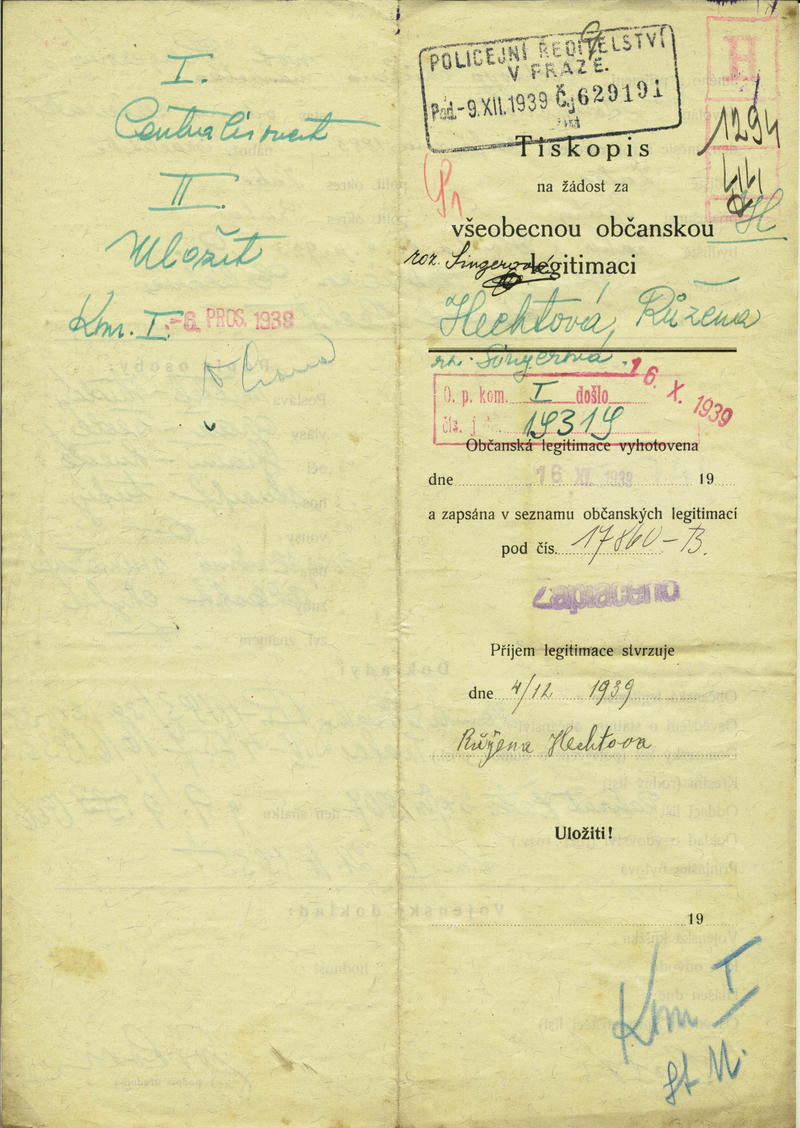 I.
Centralisovat
II.
Uložit
Kom. I. -6. PROS. 1939
POLICEJNÍ ŘEDITELSTVÍ
V PRAZE.
Pod. -9.XII.1939 Čj 629191
H
1294
44
H
Tiskopis
na žádost za
všeobecnou občanskou
legitimaci
roz. Singerová
Hechtová, Růžena
roz. Singerová.
16. X. 1939
O. p. kom. I došlo
čís. j. 19319
Občanská legitimace vyhotovena
dne 16 XI. 1939 19
a zapsána v seznamu občanských legitimací
pod čís. 17860-B.
Zaplaceno
Příjem legitimace stvrzuje
dne 4/12 1939
Růžena Hechtova
Uložiti!
19
Km I
st M.